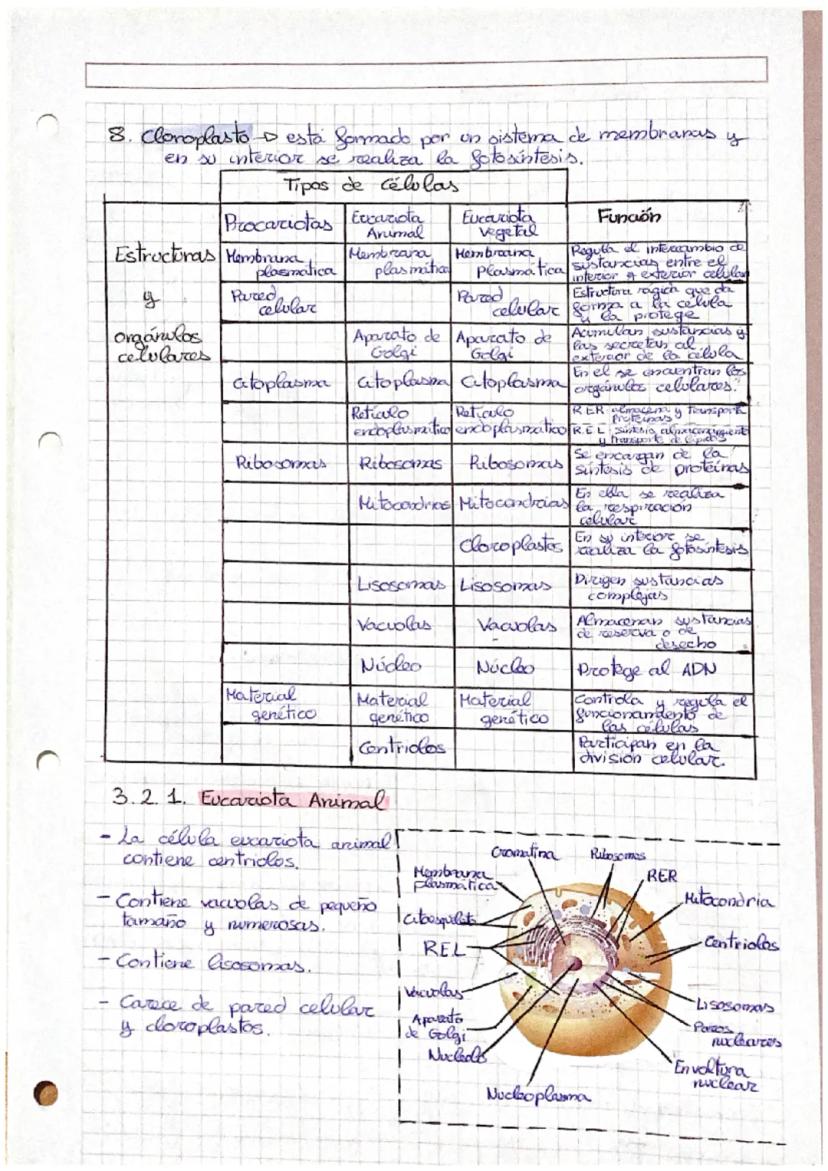 8. Cloroplasto → está formado por un sistema de membranas y
en su interior se realiza la fotosíntesis.
Tipos de células
Procariotas Eucariota Animal Eucariota Vegetal Función
Estructuras y orgánulos celulares
Membrana plasmática Membrana plasmática Membrana plasmática Regula el intercambio de sustancias entre el interior y exterior celular
Pared celular Pared celular Estructura rígida que da forma a la célula y la protege
Aparato de Golgi Aparato de Golgi Acumulan sustancias y las secretan al exterior de la célula
Citoplasma Citoplasma Citoplasma En el se encuentran los orgánulos celulares.
Retículo endoplasmático Retículo endoplasmático RER: almacena y transporta proteínas
REL: síntesis, almacenamiento y transporte de lípidos
Ribosomas Ribosomas Ribosomas Se encargan de la síntesis de proteínas
Mitocondrias Mitocondrias En ella se realiza la respiración celular
Cloroplastos En su interior se realiza la fotosíntesis
Lisosomas Lisosomas Dirigen sustancias complejas
Vacuolas Vacuolas Almacenan sustancias de reserva o de desecho
Núcleo Núcleo Protege al ADN
Material genético Material genético Material genético Controla y regula el funcionamiento de las células
Centriolos Participan en la división celular.
3.2.1. Eucariota Animal
- La célula eucariota animal
contiene centriolos.
- Contiene vacuolas de pequeño
tamaño y numerosas.
- Contiene lisosomas.
- Carece de pared celular
y cloroplastos.
Cromatina
Ribosomas
Membrana
plasmática
RER
Mitocondria
Citoesqueleto
Centriolos
REL
Vacuolas
Lisosomas
Aparato
de Golgi
Poros
nucleares
Nucleolo
Envoltura
nuclear
Nucleoplasma